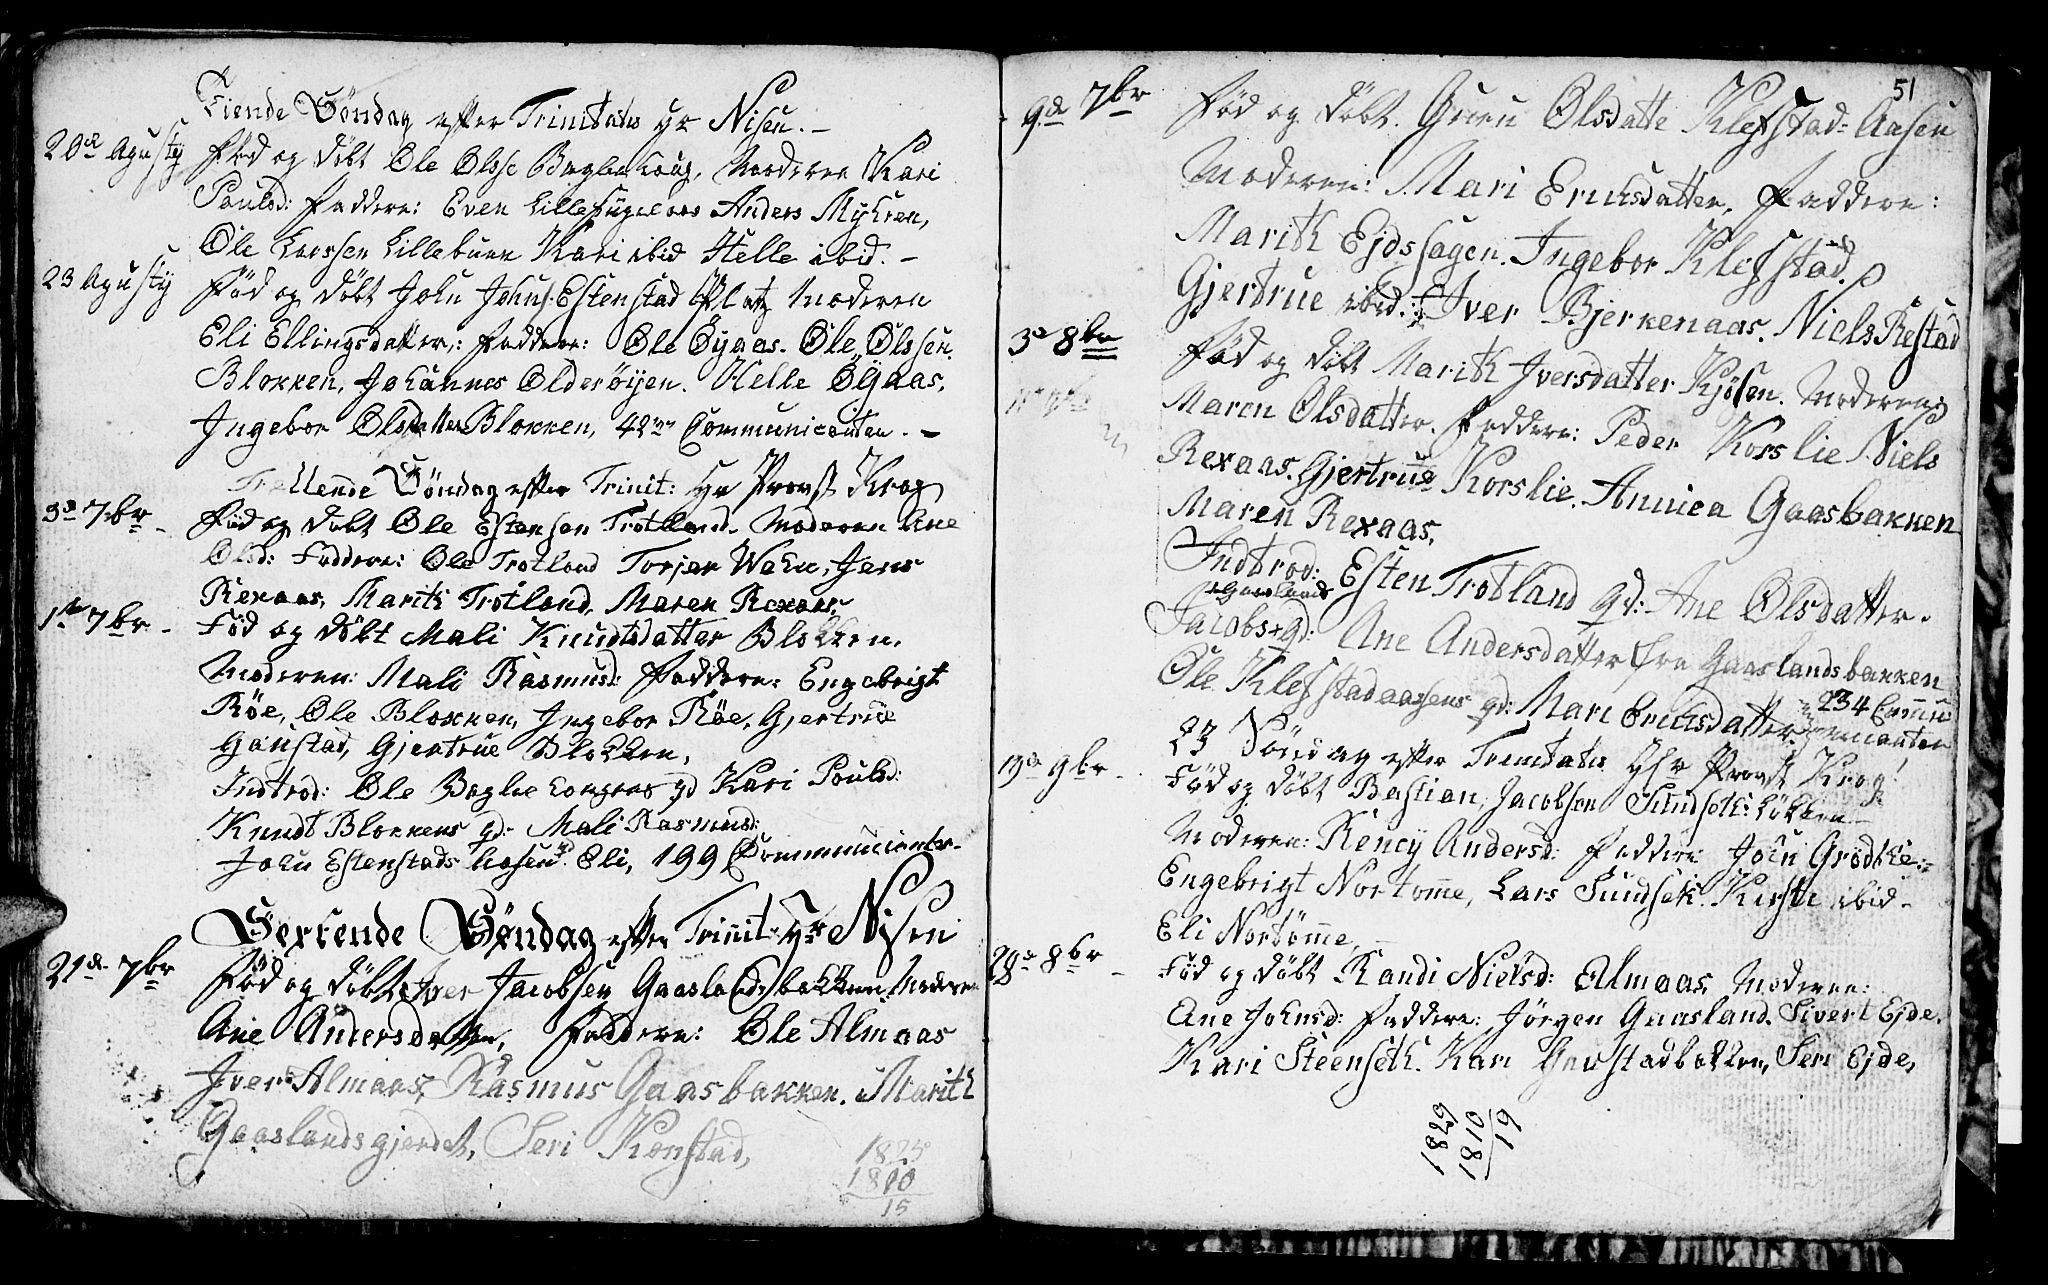 Tiende Søndag efter Trinitatis Hr Nisen. –
20de Agusty Fød og Døbt Ole Olss Baglie Koug. Moderen Kari
Poulsd: Faddere: Even Lillefugelaas Anders Myhren,
Ole Larssen Lillebuen Kari ibid Helle ibid. –
23 Agusty Fød og Døbt John Johns: Estenstad Platz Moderen
Eli Ellingsdatter: Faddere: Ole Øyaas. Ole Olssen
Blokken, Johannes Olderøyen. Helle Øyaas,
Ingebor Olsdatter Blokken, 42 Communicanter. –
Trettende Søndag efter Trinit: Hr Provst Krog
3de 7br – Fød og Døbt Ole Estensen Trotland. Moderen Ane
Olsd: Faddere: Ole Trotland Torjer Wehn, Jens
Rexaas, Marith Trotland, Maren Rexaas,
1ste 7br. – Fød og Døbt Mali Knudtsdatter Blokken.
Moderen: Mali Rasmusd: Faddere: Engebrigt
Røe, Ole Blokken, Ingebor Røe, Gjertrue
Gaustad, Gjertrue Blokken,
Indtrod: Ole Baglie qd Kari Poulsd:
Knudt Blokkens qd: Mali Rasmusd:
John Estenstads Eli, 199 Communicenter.
Sextende Søndag efter Trinit: Hr Nisen
21de 7br Fød og Døbt Iver Jacobsen Gaaslandsbakken. Moderen
Ane Andersdatter, Faddere: Ole Almaas
Iver Almaas, Rasmus Gaasbakken. Marith
Gaaslandsgjerdet, Seri Konstad,
1825
1810
15
51
9de 7br Fød og Døbt. Guru Olsdatte Klefstad=Aasen
Moderen: Mari Erichsdatter, Faddere:
Marith Ejdssagen. Ingebor Klefstad.
Gjertrue ibid: Iver Bjerkenaas. Niels Restad
3de 8br Fød og Døbt Marith Iversdatter Kjøsen. Moderen:
Maren Olsdatter. Faddere: Peder Korslie Niels
Rexaas. Gjertrue Korslie. Annica Gaasbakken
Maren Rexaas,
Indtrod: Esten Trotland qd: Ane Olsdatter.
Gaaslands
Jacobs qd: Ane Andersdatter fra Gaaslandsbakken
Ole Klefstadaasens qd: Mari Erichsdatter, 234 Commu
nicanter
23 Søndag efter Trinitatis Hr Provst Krog
19de 9br – Fød og Døbt Bastian Jacobsen Sundseth: Løkken
Moderen: Rency Andersd: Faddere John Grødthe:
Engebrigt Nortømme, Lars Sundseth. Kirsti ibid –
Eli Nortømme, –
29de 8br – Fød og Døbt Randi Nielsd: Almaas. Moderen:
Ane Johnsd: Faddere: Jørgen Gaasland. Sivert Ejde.
Kari Steenseth. Kari Gaustadbakken, Seri Ejde,
1829
1810
19